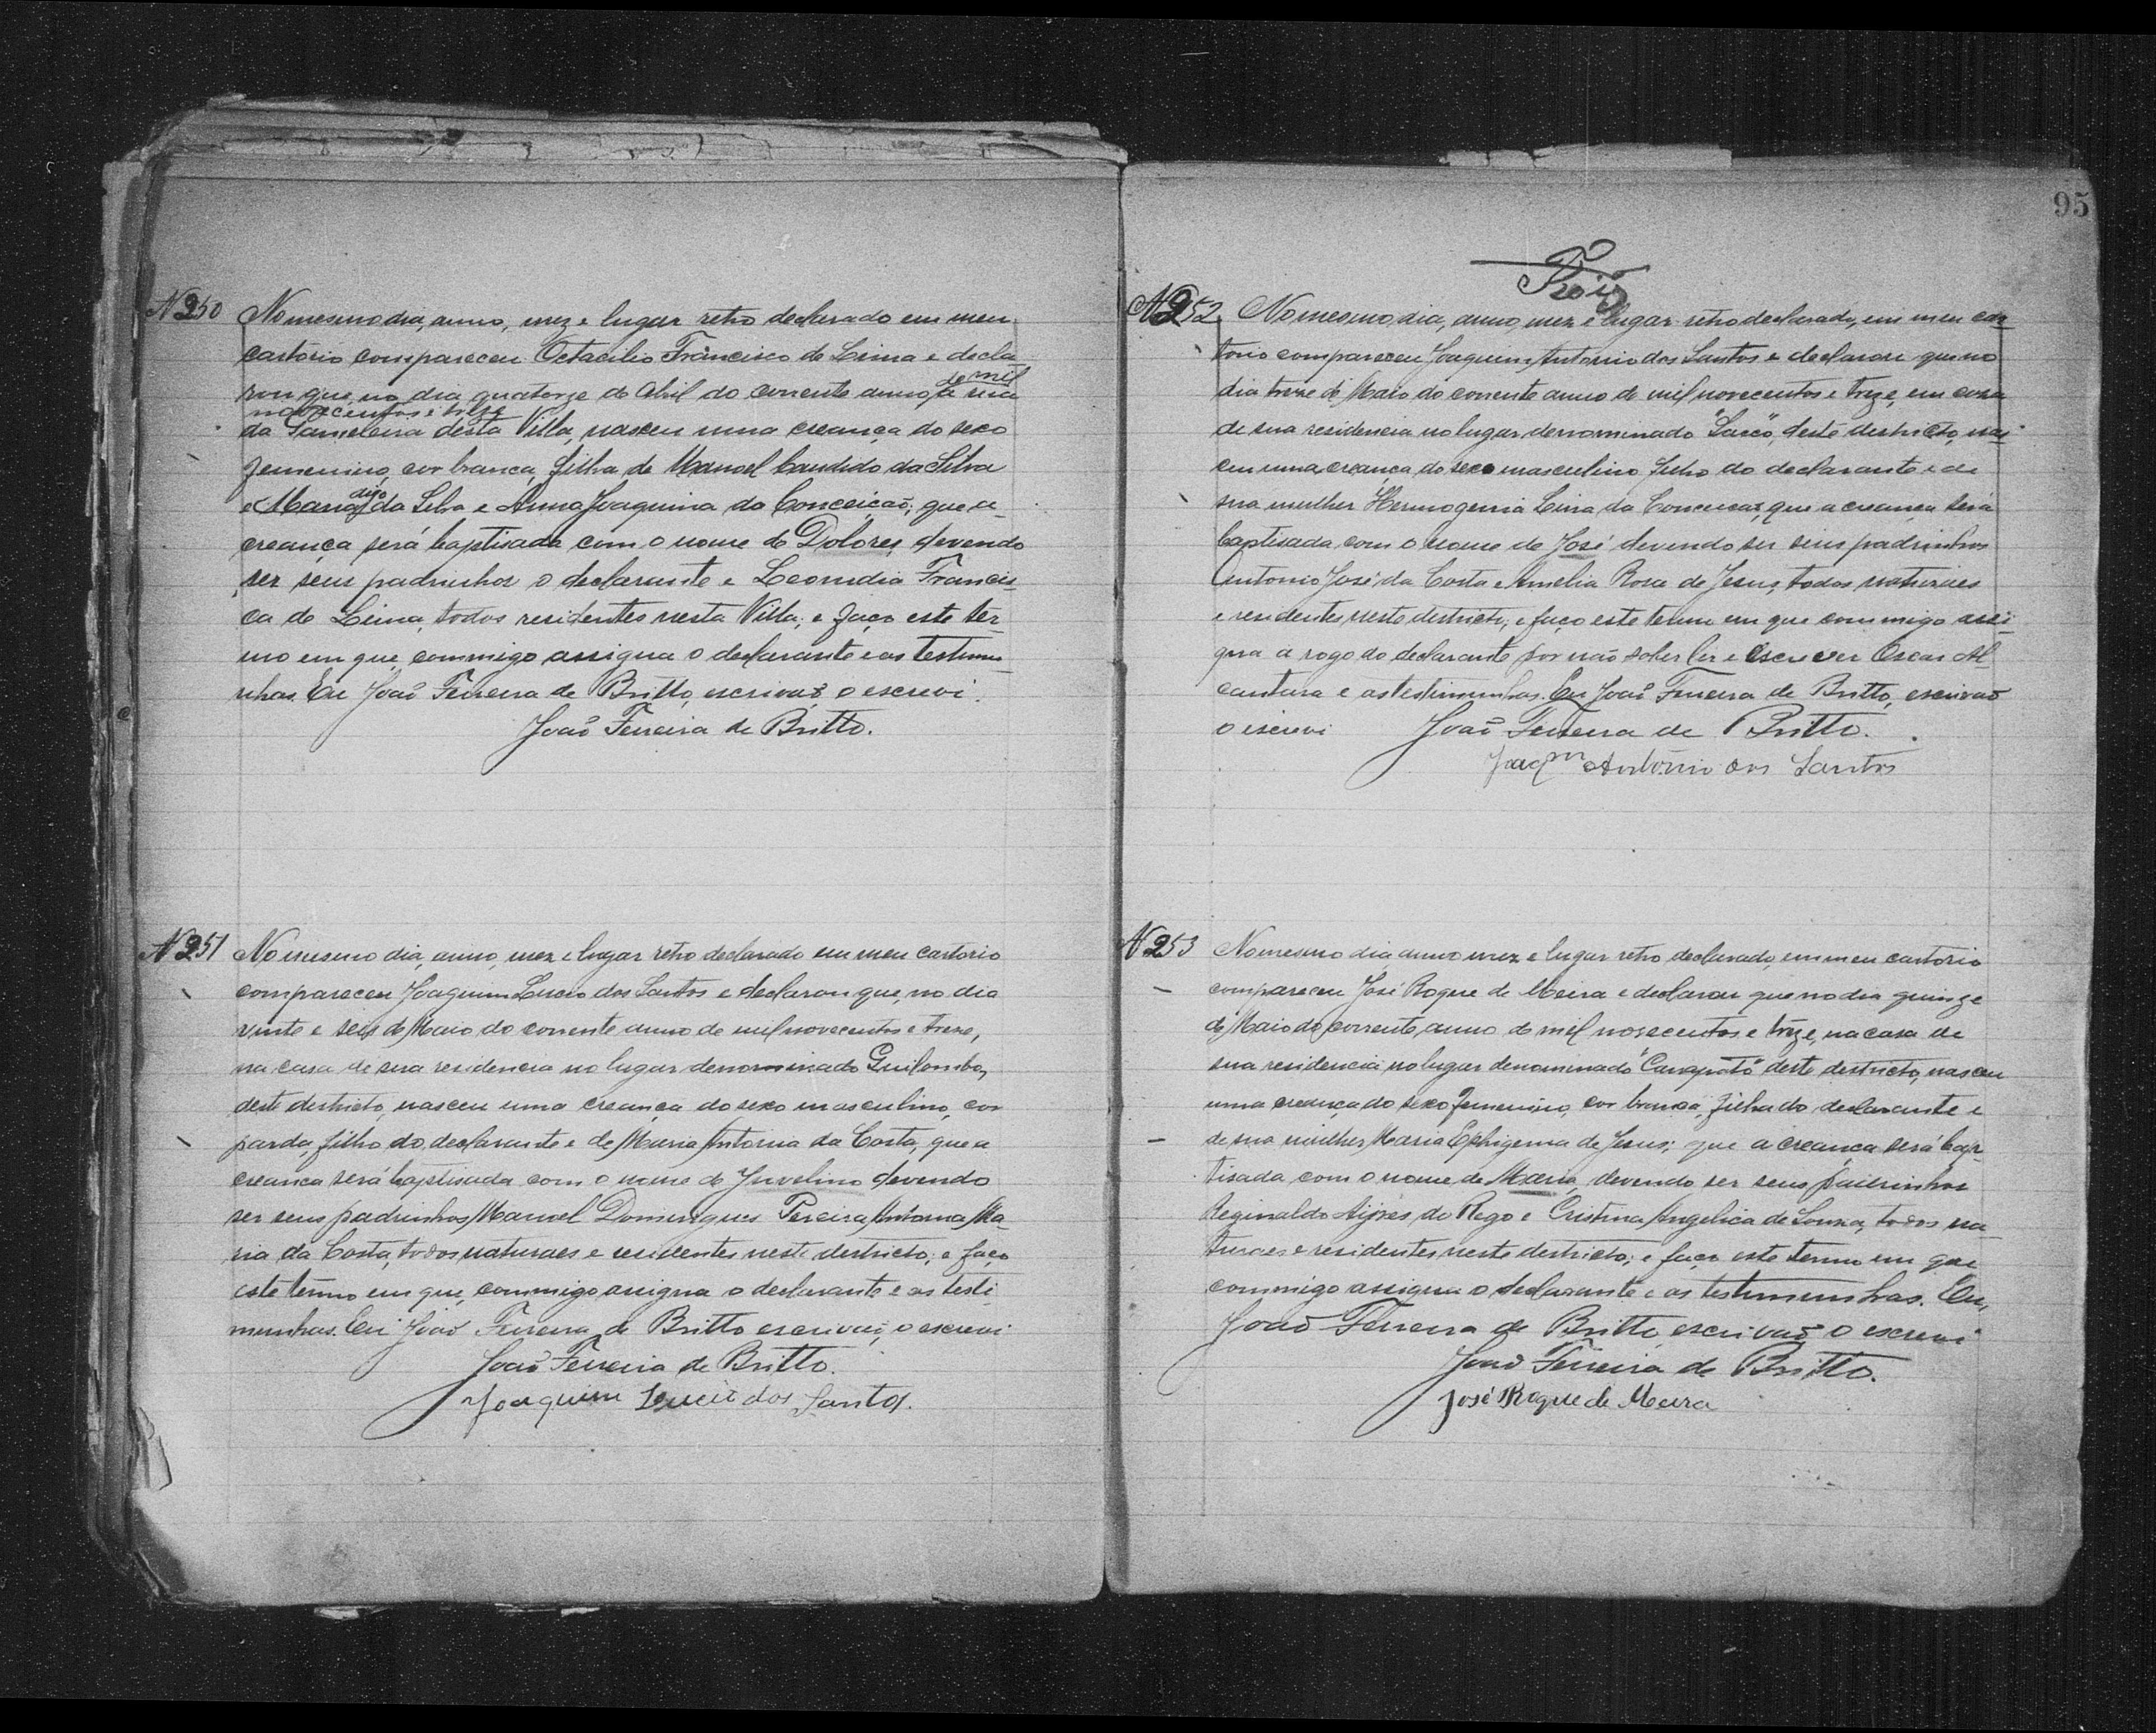 N 250 No mesmo dia, anno, mez e lugar retro declarado em meu
cartorio compareceu Octacilio Francisco de Lima e decla
rou que, no dia quatorze de Abril do corrente anno, de mil
novecentos e treze
da Gamelleira desta Villa, nasceu uma creança do sexo
femenino, cor branca, filha de Manoel Candido da Silva
e Maria digo da Silva e Anna Joaquina da Conceição; que a
creança será baptisada com o nome de Dolores, devendo
ser seus padrinhos o declarante e Leonidia Francis-
ca de Lima, todos residentes nesta Villa; e faço este ter-
mo em que, commigo assigna o declarante e as testimu
nhas. Eu João Ferreira de Britto, escrivaõ, o escrevi.
João Ferreira de Britto.
N 251 No mesmo dia, anno, mez e lugar retro declarado em meu cartorio
compareceu Joaquim Lucio dos Santos e declarou que, no dia
vinte e seis de Maio do corrente anno de mil novecentos e treze,
na casa de sua residencia no lugar denominado Guilombo,
deste destricto, nasceu uma creança do sexo masculino, cor
parda, filho do declarante e de Maria Antonia da Costa, que a
creança será baptisada com o nome de Juvelino devendo
ser seus padrinhos Manoel Domingues Pereira Antonia Ma
ria da Costa, todos naturaes e residentes neste destricto; e faço
este termo em que, commigo assigna o declarante e as testi
munhas. Eu João Ferreira de Britto escrivaõ, o escrevi
João Ferreira de Britto.
Joaquim Lucio dos Santos.
95
N 252 No mesmo dia, anno, mez e lugar retro declarado, em meu car
torio compareceu Joaquim Antonio dos Santos e declarou que no
dia treze de Maio do corrente anno de mil novecentos e treze, em casa
de sua residencia no lugar denominado deste destricto, nas
ceu uma creança do sexo masculino filho do declarante e de
sua mulher Hermogenia Lina da Conceicaõ, que a creança será
baptisada com o nome de José devendo ser seus padrinhos
Antonio José da Costa e Amelia Rosa de Jesus, todos naturaes
e residentes neste destricto; e faço este termo em que commigo assi-
gna a rogo do declarante por não saber ler e escrever Oscar Al
cantara e as testimunhas. Eu João Ferreira de Britto, escrivaõ
o escrevi João Ferreira de Britto.
Joaqm Antonio dos Santos
N 253 No mesmo dia anno mez e lugar retro declarado, em meu cartorio
compareceu José Roque de Meira e declarou que no dia quinze
de Maio do corrente anno de mil novecentos e treze, na casa de
sua residencia no lugar denominado deste destricto, nasceu
uma creança do sexo femenino, cor branca, filha do declarante e
de sua mulher Maria Ephigenia de Jesus; que a creança será bap-
tisada com o nome de Maria, devendo ser seus padrinhos
Reginaldo Ayres do Rego e Cristina Angelica de Souza, todos na
turaes e residentes neste destricto; e faço este termo em que
commigo assigna o declarante e as testimunhas. Eu,
João Ferreira de Britto, escrivaõ o escrevi
João Ferreira de Britto.
José Roque de Meira